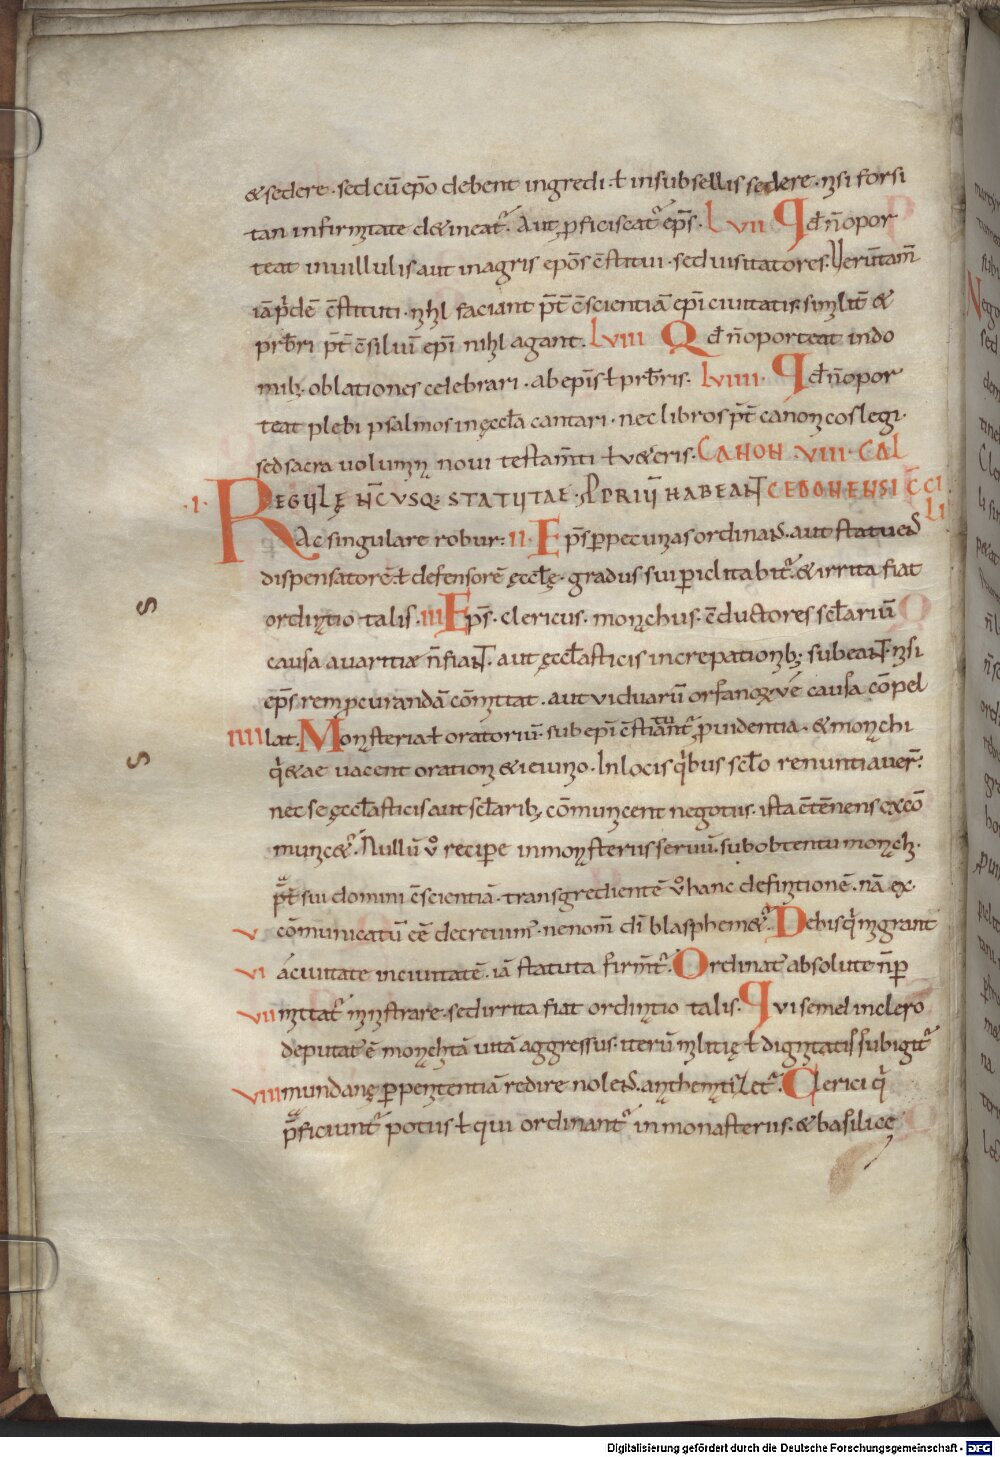 & sedere · sed cū ep̄o debent ingredi · ł in subsellis sedere · nisi forsi
tan infirmitate detineat᷑ · Aut p̱ficiscat᷑ ep̄s · lvii Qd n̄ opor
teat in uillulis aut in agris ep̄os c̄stitui · sed uisitatores · Verūtam̄
iā p̓dē c̄stituti · nihil faciant p̄t c̄scientiā ep̄i ciuitatis · similit̄ &
prb̄ri p̄t c̄siliū ep̄i nihl agant · lviii Qd n̄ oporteat in do
mib; · oblationes celebrari · ab ep̄is ł prb̄ris · lviiii · Qd n̄ opor
teat plebi psalmos in ęccła cantari · nec libros p̄t canonicos legi ·
sed sacra uolumina noui testam̄ti ł ueteris · CANON · VIII · CAL
CEDONENSI C̄CI
LI
· I · REGULĘ N̄C USQ; STATUTAE · PPRIŪ HABEANT
Ac singulare robur · II · Ep̄s p̱ pecunias ordinand · aut statuend
dispensatorē · ł defensorē ęccłę · gradus sui p̱iclitabit᷑ · & irrita fiat
ordinatio talis · III Ep̄s · clericus · monachus · c̄ductores scłariū
causa auaritiæ n̄ fiant · aut ęccłasticis increpationib; subeant · nisi
ep̄s rem p̱curandā cōmittat · aut uiduarū orfanoꝝ ue causa cōpel
IIII lat · Monasteria ł oratoriū · sub ep̄i c̄stituant᷑ p̱uidentia · & monachi
q̓etae uacent orationi & ieiunio · In locis q̓bus scło renuntiauer̄ ·
nec se ęccłasticis aut scłarib; cōmunicent negotiis · ista c̄tēnens excō
municet᷑ · Nullū u̓ recipe in monasteriis seruū · sub obtentu monach ·
p̄t sui domini c̄scientiā · transgredientē u̓ hanc definitionē · nā ex
V cōmunicatū ēē decreuim᷒ · ne nom̄ dī blasphemet᷑ · De his q̓ migrant
VI a ciuitate in ciuitatē · iā statuta firmt᷑ · Ordinat᷑ absolute n̄ p̱
VII mittat᷑ ministrare · sed irrita fiat ordinatio talis · Qui semel in clero
deputat᷑ ē monachtā uitā aggressus · iterū militię ł dignitatis subigit᷑
VIII mundanę p̱ penitentiā redire nolend · anathematiz et᷑ · Clerici q̓
p̄ficiunt᷑ potius ł qui ordinant᷑ in monasteriis · & basilicę
S
S
Digitalisierung gefördert durch die Deutsche Forschungsgemeinschaft - DFG